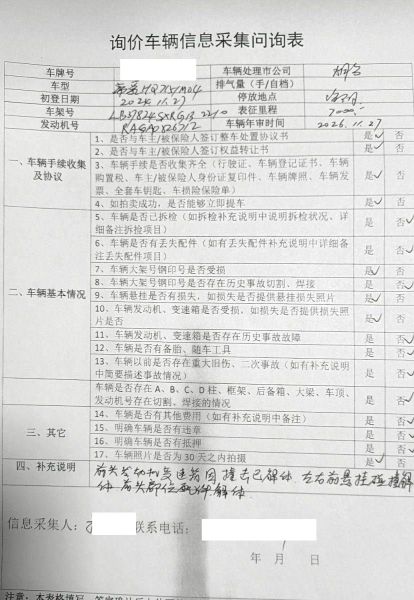 询价车辆信息采集问询表
车牌号 车辆处理市公司
车型 HQ7151M04 排气量（手/自档）
初登日期 2024.11.27 停放地点
车架号 表征里程 7000
发动机号 车辆年审时间 2026.11.27
一、车辆手续收集及协议
1、是否与车主/被保险人签订整车处置协议书 是✓ 否
2、是否与车主/被保险人签订权益转让书 是✓ 否
3、车辆手续是否收集齐全（行驶证、车辆登记证书、车辆
购置税、车主/被保险人身份证复印件、车辆牌照、车辆发
票、全套车钥匙、车损险保险单） 是 否
4、如拍卖成功，是否能够立即提车 是✓ 否
二、车辆基本情况
5、车辆是否已拆检（如拆检补充说明中说明拆检状况、详
细备注拆检项目） 是 否
6、车辆是否有丢失配件（如有丢失配件补充说明中详细备
注丢失配件项目） 是 否
7、车辆大架号钢印号是否受损 是 否
8、车辆大架号钢印号是否存在历史事故切割、焊接 是 否✓
9、车辆悬挂是否有损失，如损失是否提供悬挂损失照片 是✓ 否
10、车辆发动机、变速箱是否受损，如损失是否提供损失照
片是否 是✓ 否
11、车辆发动机、变速箱是否存在历史事故故障 是 否✓
12、车辆是否有备胎、随车工具 是 否✓
13、车辆以前是否存在重大旧伤、二次事故（如有补充说明
中简要描述事故情况） 是 否✓
车辆是否存在 A、B、C、D 柱、框架、后备箱、大梁、车顶、
发动机号存在切割、焊接的情况 是 否✓
三、其它
14、车辆是否有其他费用（如有补充说明中备注） 是 否✓
15、明确车辆是否有违章 是 否✓
16、明确车辆是否有抵押 是 否✓
17、车辆照片是否为 30 天之内拍摄 是✓ 否
四、补充说明
前头发动机变速箱因撞击已解体 左右前悬挂碰撞解
体 前头部位配件解体
信息采集人： 联系电话：
年 月 日